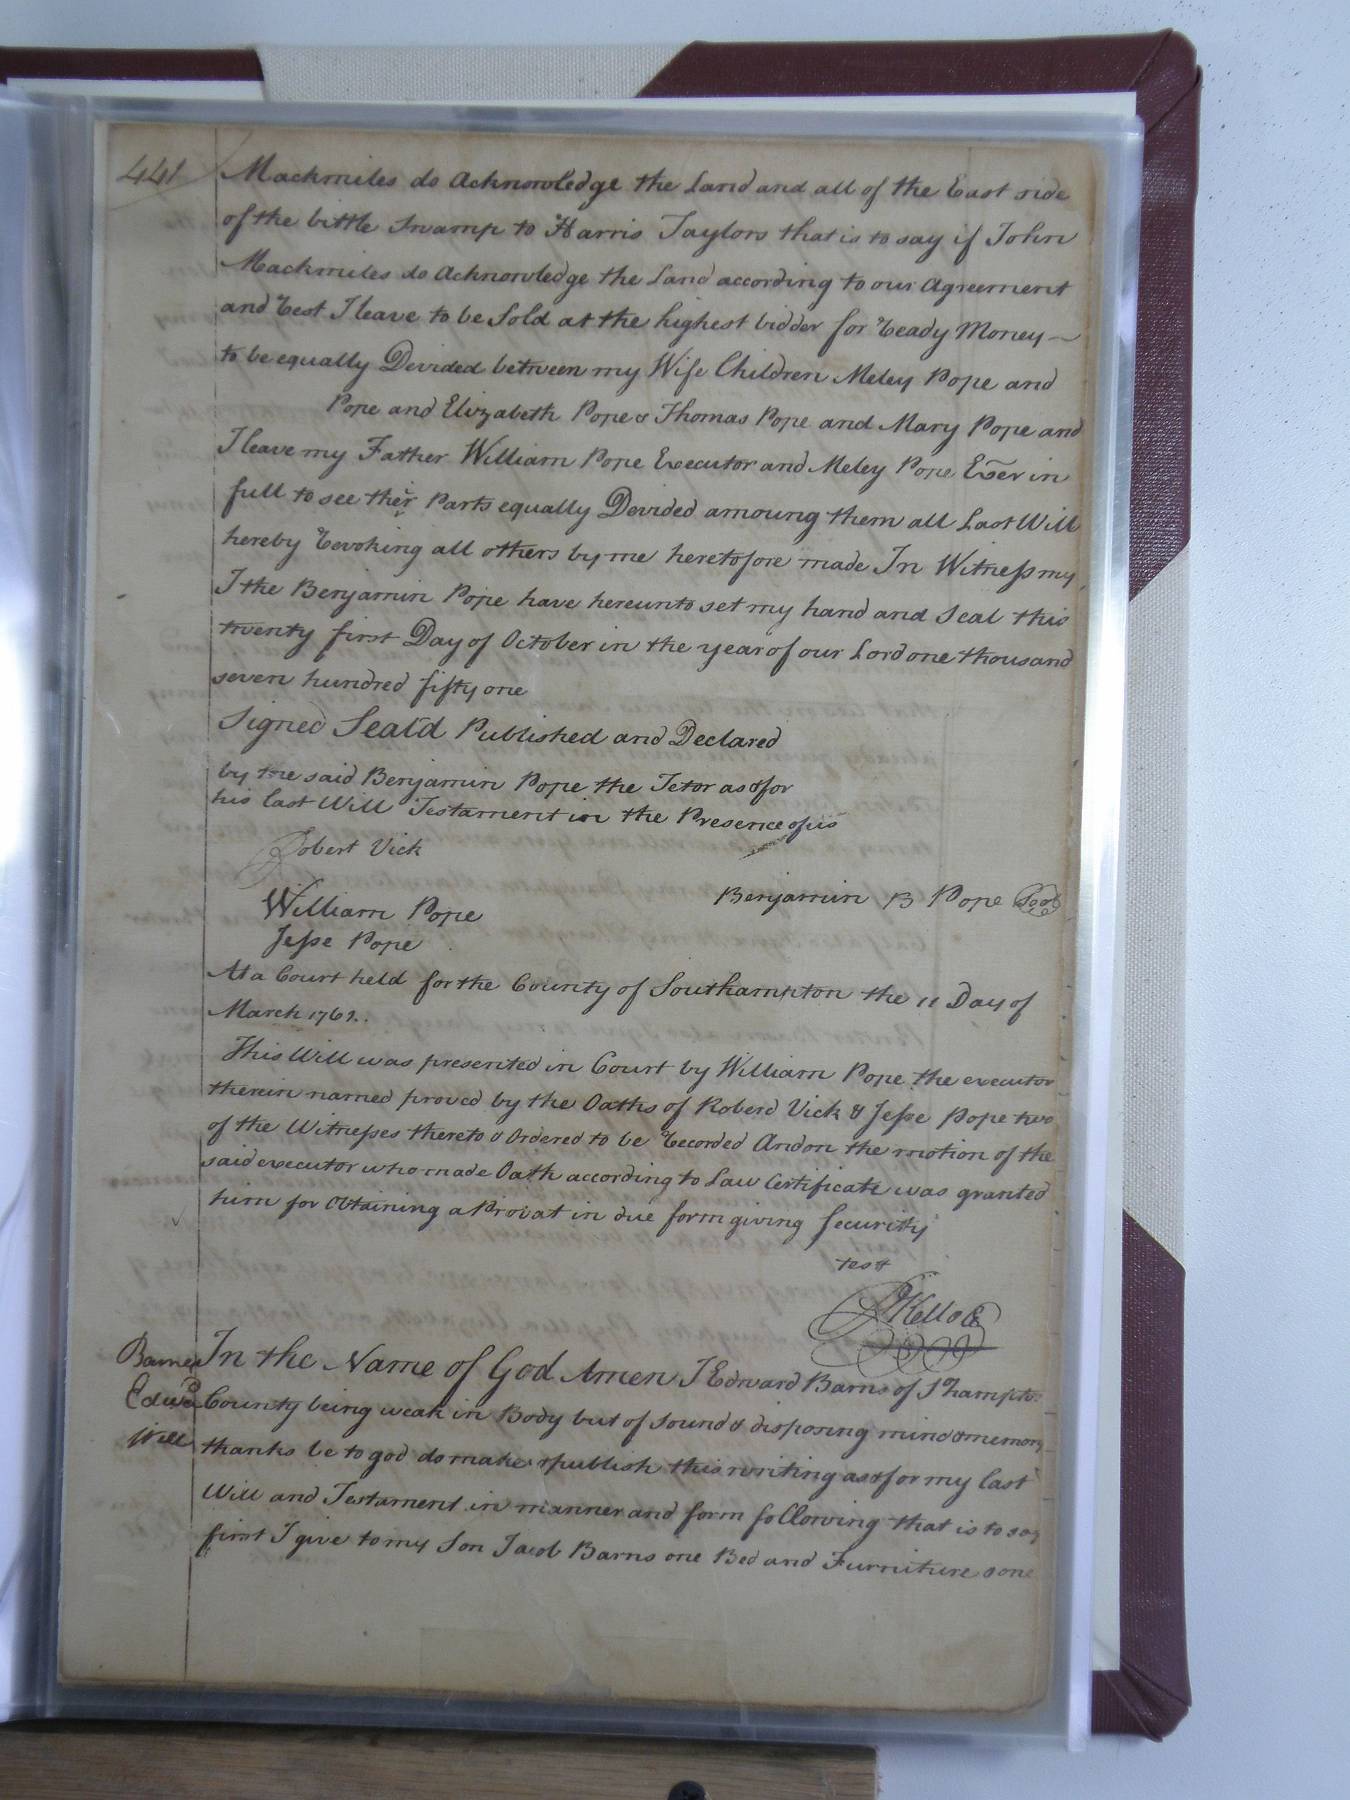 441
Mackmiles do Acknowledge the Land and all of the East side
of the little Swamp to Harris Taylors that is to say if John
Mackmiles do Acknowledge the Land according to our Agreement
and Rest I leave to be Sold at the highest bidder for Ready Money —
to be equally Devided between my Wife Children Meley Pope and
Pope and Elizabeth Pope & Thomas Pope and Mary Pope and
I leave my Father William Pope Executor and Meley Pope Exer in
full to see their Parts equally Devided amoung them all Last Will
hereby Revoking all others by me heretofore made In Witness my
I the Benjamin Pope have hereunto set my hand and Seal this
twenty first Day of October in the year of our Lord one thousand
seven hundred fifty one
Signed Seal'd Published and Declared
by the said Benjamin Pope the Tetor as & for
his last Will Testament in the Presence of us
Robert Vick
Benjamin B Pope Seal
William Pope
Jesse Pope
At a Court held for the County of Southampton the 11 Day of
March 1762.
This Will was presented in Court by William Pope the executor
therein named proved by the Oaths of Roberd Vick & Jesse Pope two
of the Witnesses thereto & Ordered to be Recorded And on the motion of the
said executor who made Oath according to Law Certificate was granted
him for Obtaining a Probat in due form giving Security
test
RKello C
Barnes
Edwd
Will
In the Name of God Amen I Edward Barns of S'hampto:
County being weak in Body but of Sound & disposing mind & memory
thanks be to god do make & publish this writing as & for my last
Will and Testament in manner and form following that is to say
first I give to my Son Jacob Barns one Bed and Furniture & one